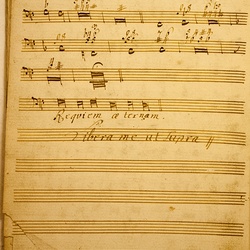 Requiem æternam.
Libera me ut supra